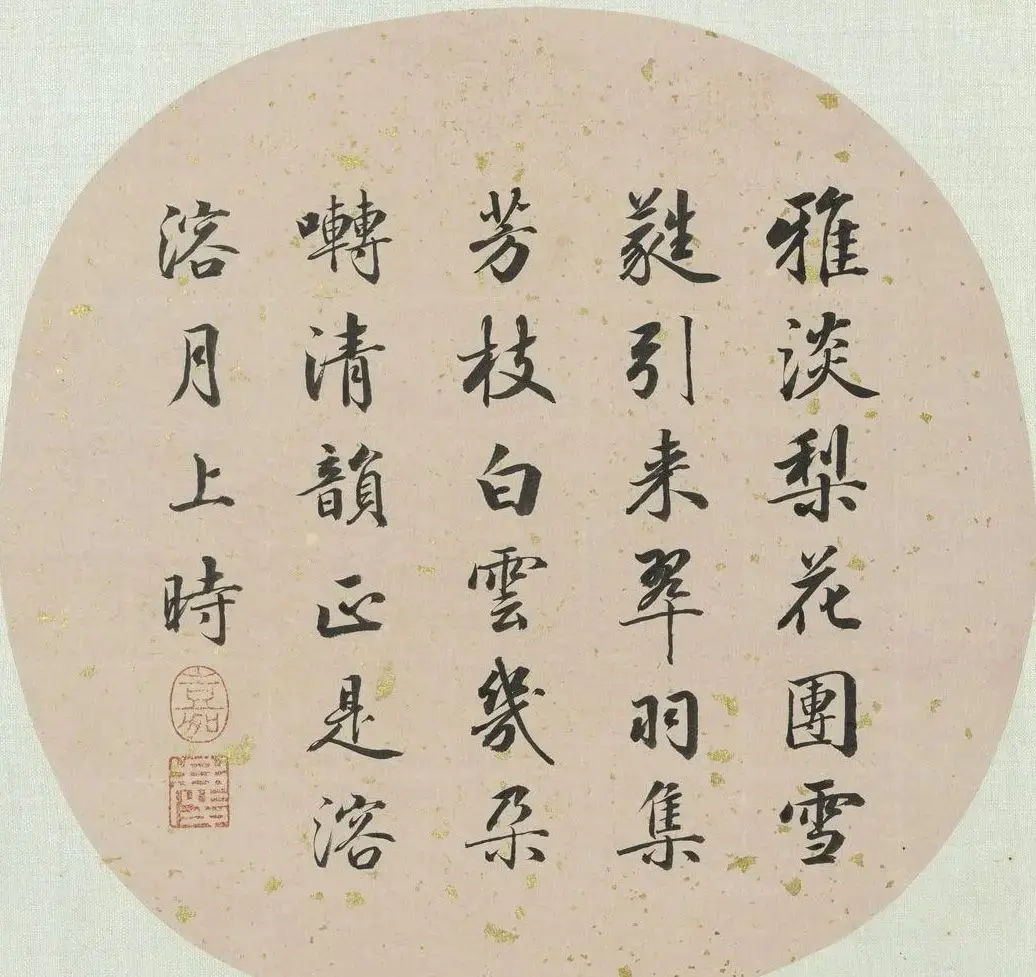 雅淡梨花團雪
蕤引来翠羽集
芳枝白雲幾朵
囀清韻正是溶
溶月上時
嘉